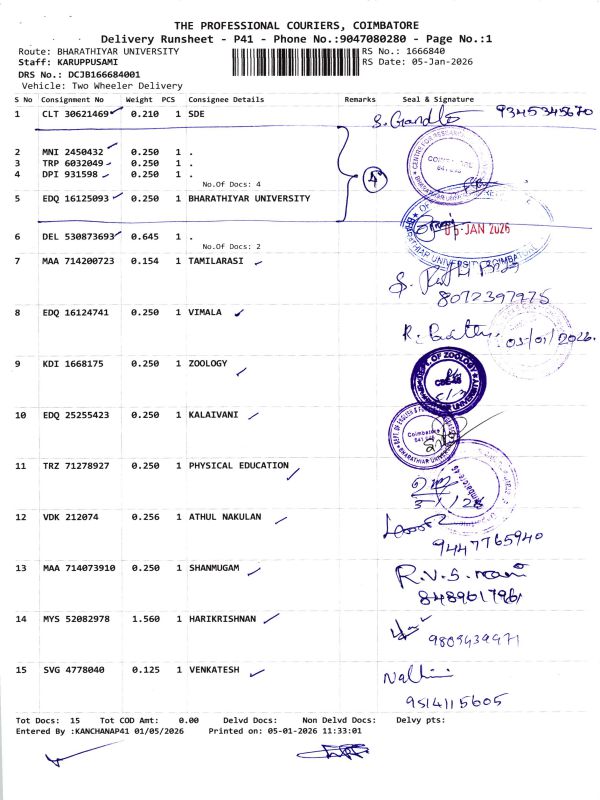 THE PROFESSIONAL COURIERS, COIMBATORE
Delivery Runsheet - P41 - Phone No.:9047080280 - Page No.:1
Route: BHARATHIYAR UNIVERSITY RS No.: 1666840
Staff: KARUPPUSAMI RS Date: 05-Jan-2026
DRS No.: DCJB166684001
Vehicle: Two Wheeler Delivery
S No Consignment No Weight PCS Consignee Details Remarks Seal & Signature
1 CLT 30621469 0.210 1 SDE 9345345670
2 MNI 2450432 0.250 1 .
3 TRP 6032049 0.250 1 .
4 DPI 931598 0.250 1 .
No.Of Docs: 4
5 EDQ 16125093 0.250 1 BHARATHIYAR UNIVERSITY
05-JAN 2026
6 DEL 530873693 0.645 1 .
No.Of Docs: 2
7 MAA 714200723 0.154 1 TAMILARASI
8072397975
8 EDQ 16124741 0.250 1 VIMALA
05/01/2026.
9 KDI 1668175 0.250 1 ZOOLOGY
DEPT. OF ZOOLOGY
10 EDQ 25255423 0.250 1 KALAIVANI
Coimbatore
11 TRZ 71278927 0.250 1 PHYSICAL EDUCATION
12 VDK 212074 0.256 1 ATHUL NAKULAN
9447765940
13 MAA 714073910 0.250 1 SHANMUGAM
R.V.S. mani
8489617961
14 MYS 52082978 1.560 1 HARIKRISHNAN
9809439971
15 SVG 4778040 0.125 1 VENKATESH
Nalini
9514115605
Tot Docs: 15 Tot COD Amt: 0.00 Delvd Docs: Non Delvd Docs: Delvy pts:
Entered By :KANCHANAP41 01/05/2026 Printed on: 05-01-2026 11:33:01